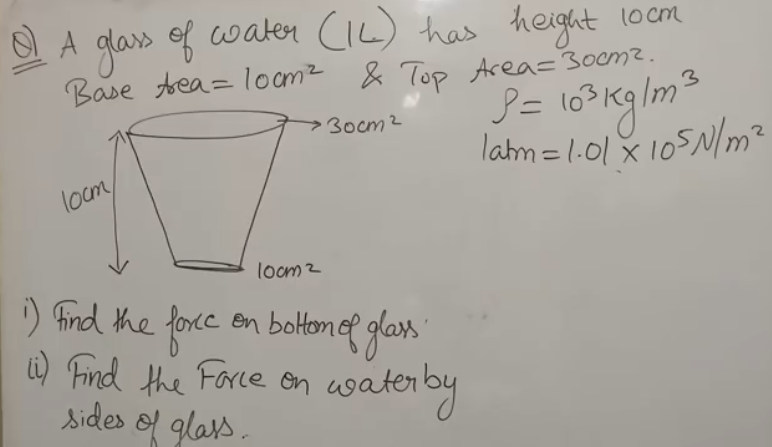 Q) A glass of water (1L) has height 10cm
Base Area = 10cm² & Top Area = 30cm².
ρ = 10³ kg/m³
1atm = 1.01 × 10⁵ N/m²
30cm²
10cm
10cm²
i) Find the force on bottom of glass.
(ii) Find the Force on water by
sides of glass.